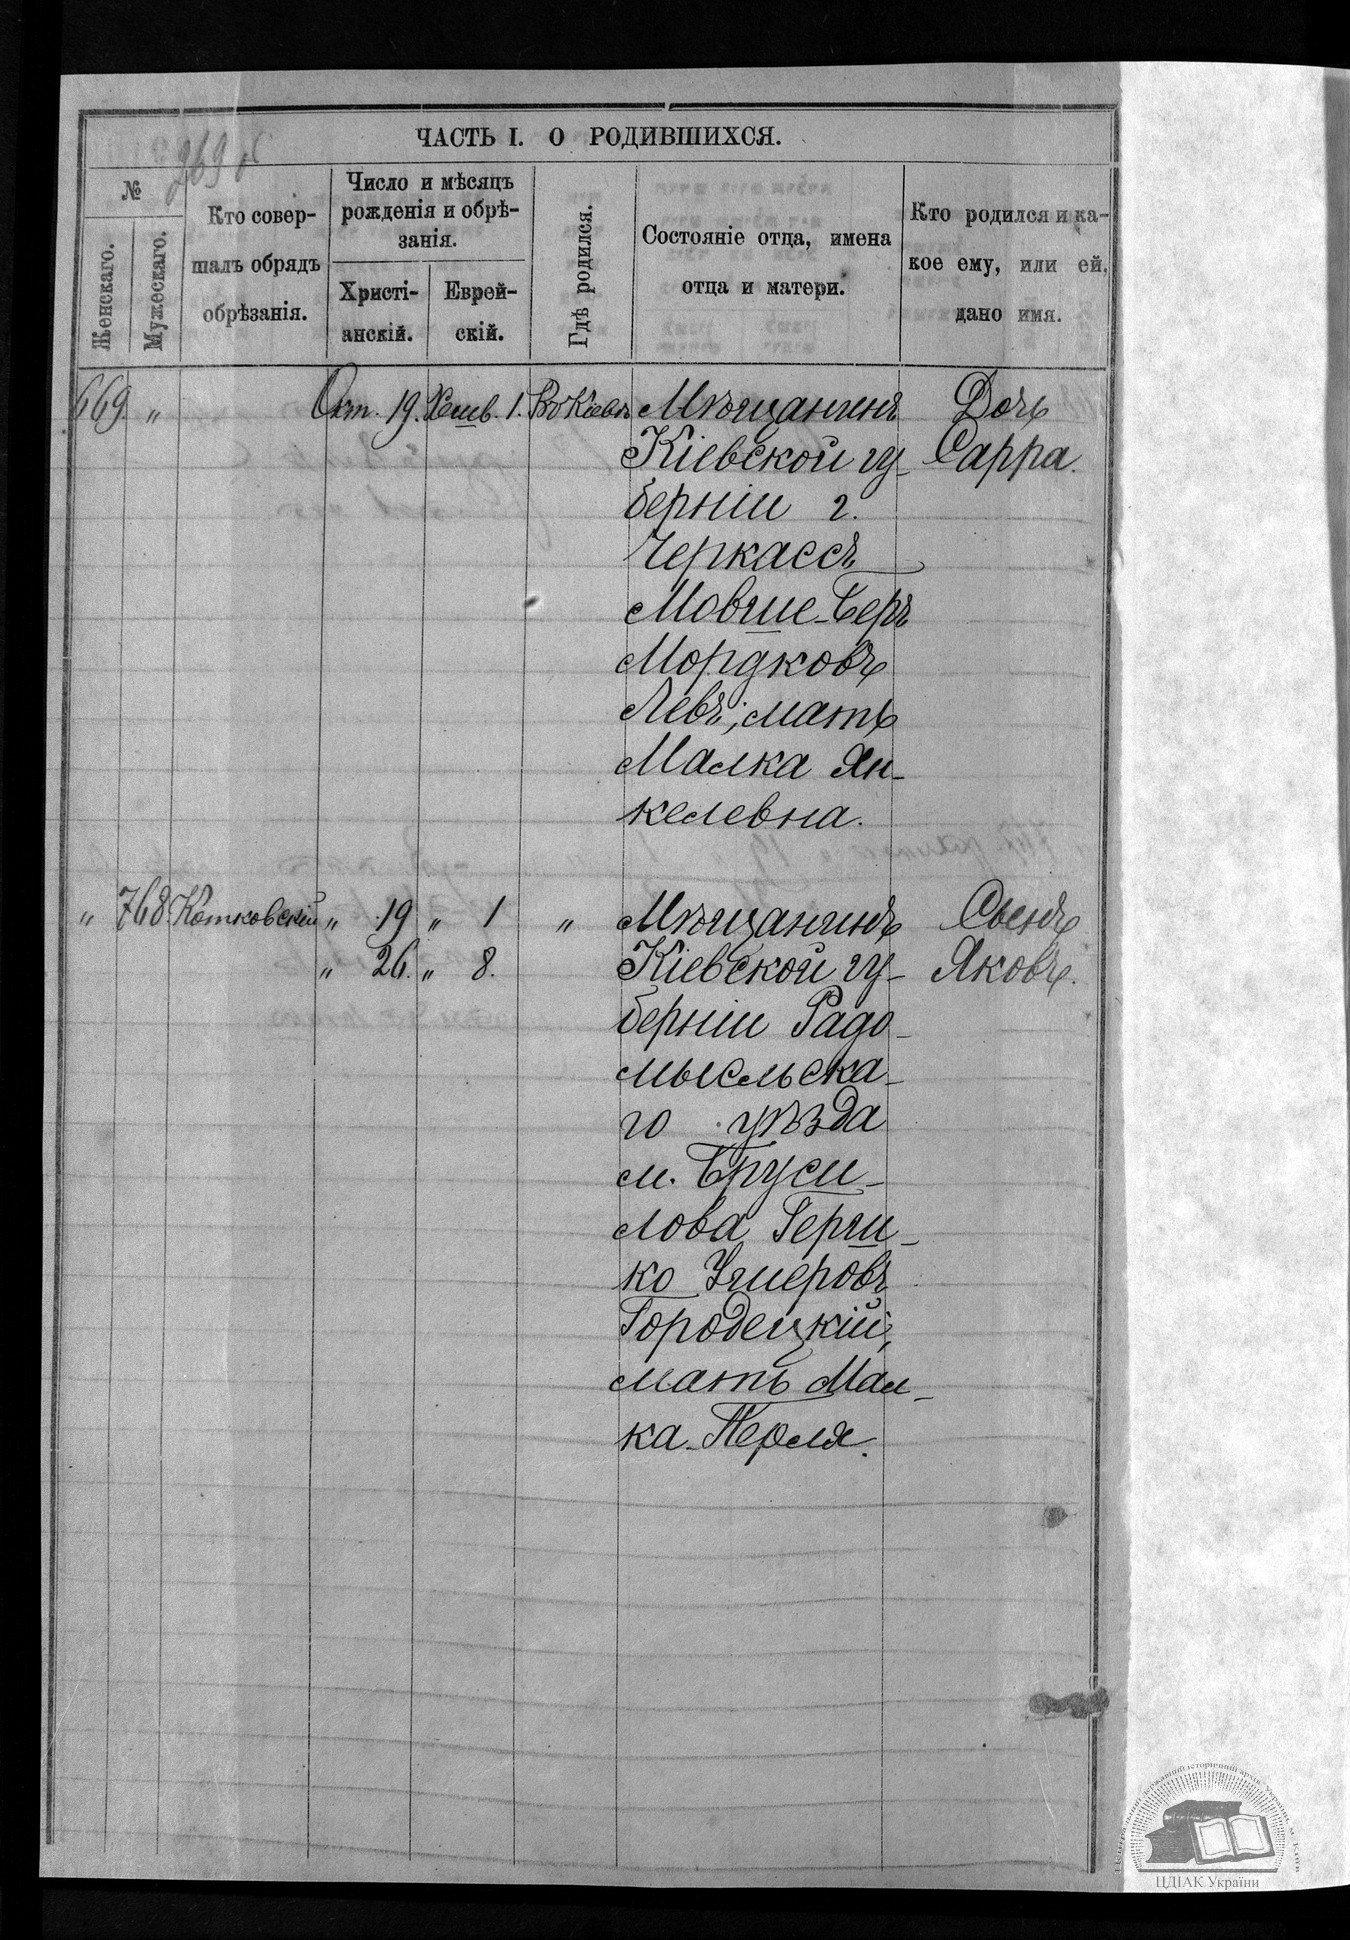 269 об
ЧАСТЬ I. О РОДИВШИХСЯ.
№
Женскаго.
Мужескаго.
Кто совер-
шалъ обрядъ
обрѣзанія.
Число и мѣсяцъ
рожденія и обрѣ-
занія.
Христі-
анскій.
Еврей-
скій.
Гдѣ родился.
Состояніе отца, имена
отца и матери.
Кто родился и ка-
кое ему, или ей,
дано имя.
669. „ Окт. 19. Хешв. 1. Въ Кіевѣ Мѣщанинъ Дочь
Кіевской гу- Сарра.
берніи г.
Черкассъ
Мовше-Беръ
Мордковъ
Левъ; мать
Малка Ян-
келевна.
„ 768. Котковскій „ 19 „ 1 „ Мѣщанинъ Сынъ
„ 26. „ 8. Кіевской гу- Яковъ.
берніи Радо-
мысльска-
го уѣзда
м. Бруси-
лова Герш-
ко Ушеровъ
Городецкій,
мать Мал-
ка-Перля.
ЦДІАК України